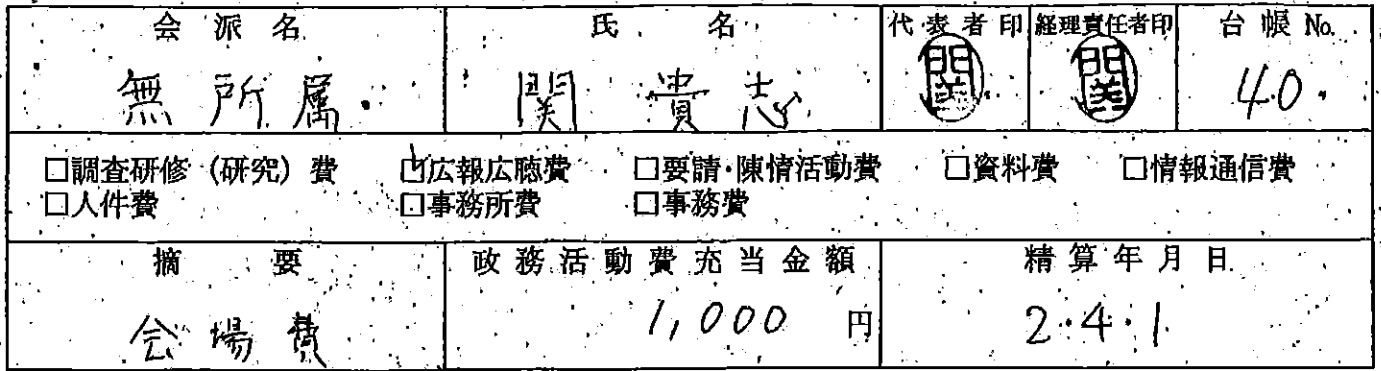 会派名 氏名 代表者印 経理責任者印 台帳No.
無所属 関貴志 関 関 40
□調査研修（研究）費 ☑広報広聴費 □要請・陳情活動費 □資料費 □情報通信費
□人件費 □事務所費 □事務費
摘要 政務活動費充当金額 精算年月日
会場費 1,000 円 2・4・1